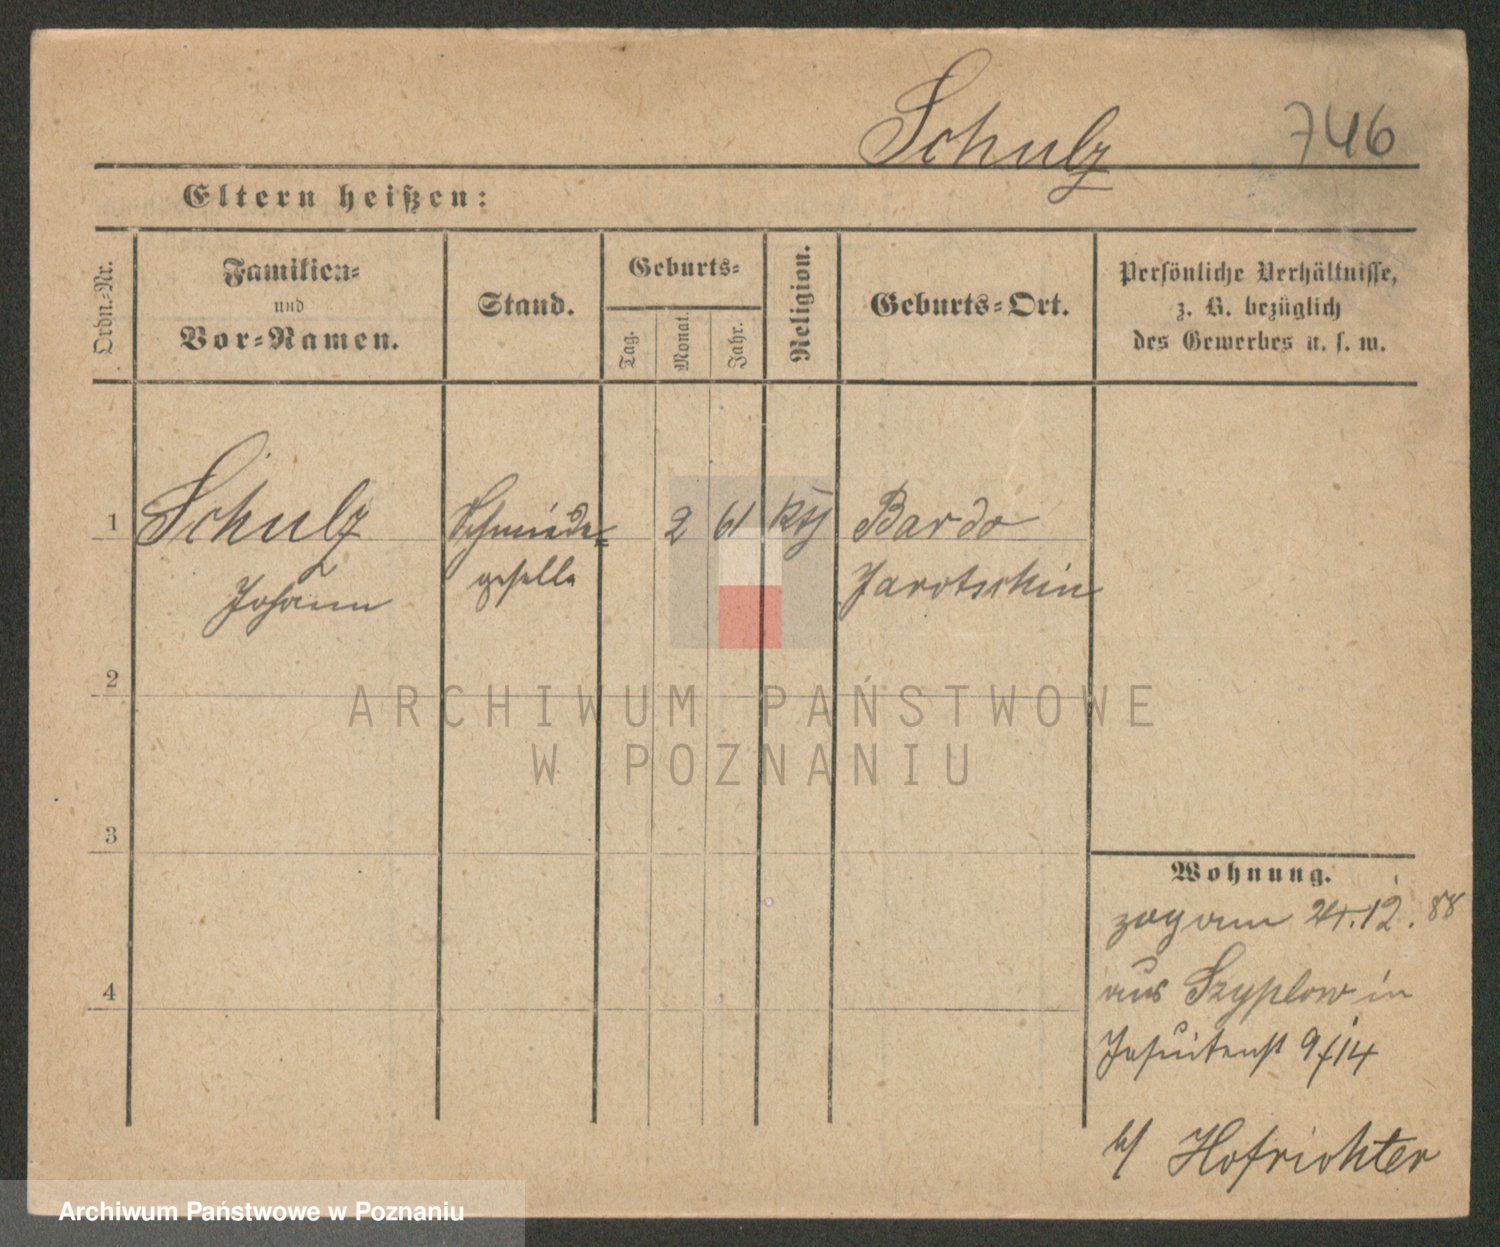 Schulz
746
Eltern heißen:
Ordn.-Nr.
Familien-
und
Vor-Namen.
Stand.
Geburts-
Tag.
Monat.
Jahr.
Religion.
Geburts-Ort.
Persönliche Verhältnisse,
z. B. bezüglich
des Gewerbes u. s. w.
1
Schulz
Johann
Schmiede-
geselle
2
61
kth
Bardo
Jarotschin
2
3
4
Wohnung.
zog am 24.12.88
aus Szyplow in
Jesuitenst 9/14
b/ Hofrichter
ARCHIWUM PAŃSTWOWE
W POZNANIU
Archiwum Państwowe w Poznaniu